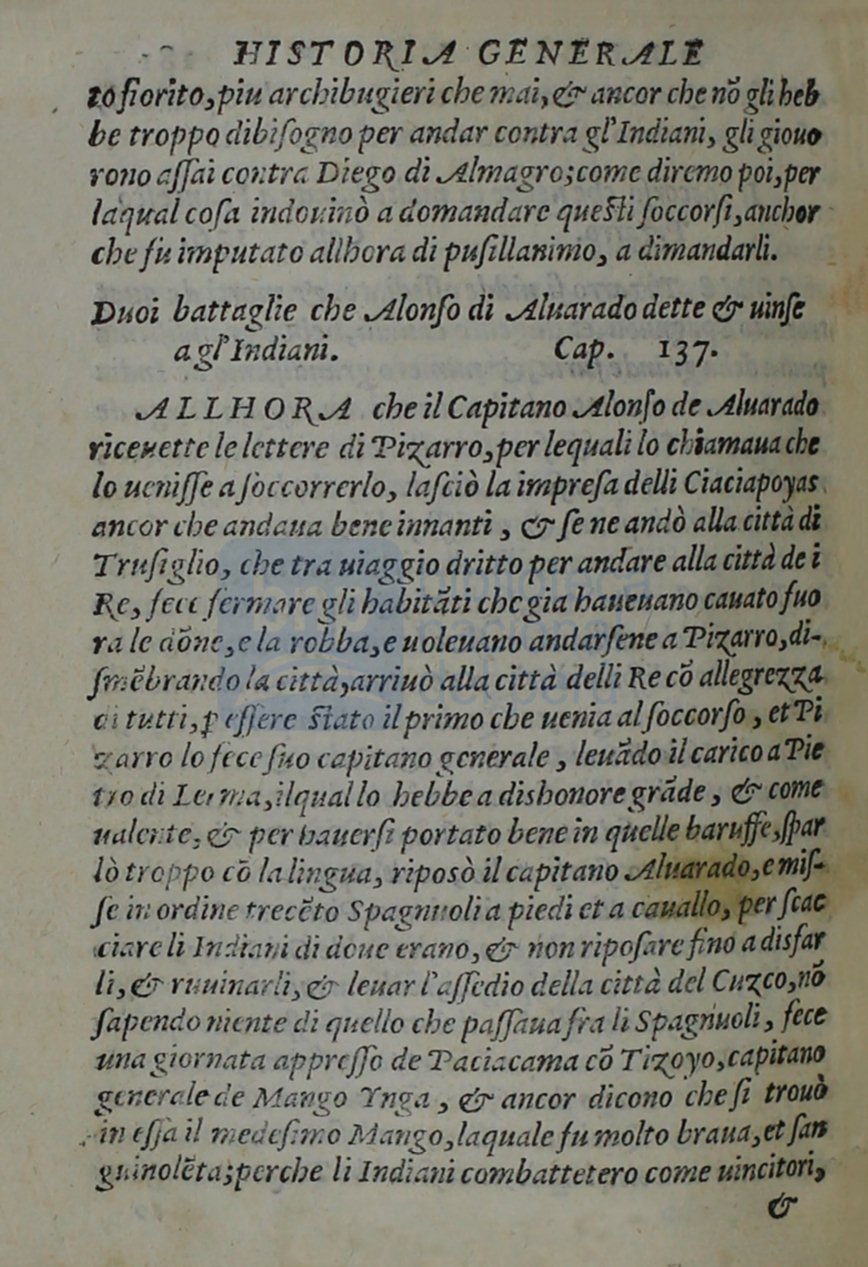 HISTORIA GENERALE
to fiorito, piu archibugieri che mai, & ancor che nõ gli heb
be troppo dibiſogno per andar contra gl'Indiani, gli giouo
rono aſſai contra Diego di Almagro; come diremo poi, per
laqual coſa indouinò a domandare queſti ſoccorſi, anchor
che fu imputato allhora di puſillanimo, a dimandarli.
Duoi battaglie che Alonſo di Aluarado dette & uinſe
a gl'Indiani. Cap. 137.
ALLHORA che il Capitano Alonſo de Aluarado
riceuette le lettere di Pizarro, per lequali lo chiamaua che
lo ueniſſe a ſoccorrerlo, laſciò la impreſa delli Ciaciapoyas
ancor che andaua bene innanti, & ſe ne andò alla città di
Truſiglio, che tra uiaggio dritto per andare alla città de i
Re, fece fermare gli habitãti che gia haueuano cauato fuo
ra le dõne, e la robba, e uoleuano andarſene a Pizarro, di-
ſmẽbrando la città, arriuò alla città delli Re cõ allegrezza
di tutti, ꝑ eſſere ſtato il primo che uenia al ſoccorſo, et Pi
zarro lo fece ſuo capitano generale, leuãdo il carico a Pie
tro di Lerma, ilqual lo hebbe a dishonore grãde, & come
ualente, & per hauerſi portato bene in quelle baruffe, ſpar
lò troppo cõ la lingua, riposò il capitano Aluarado, e miſ-
ſe in ordine trecẽto Spagnuoli a piedi et a cauallo, per ſcac
ciare li Indiani di doue erano, & non ripoſare fino a disfar
li, & ruuinarli, & leuar l'aſſedio della città del Cuzco, nõ
ſapendo niente di quello che paſſaua fra li Spagnuoli, fece
una giornata appreſſo de Paciacama cõ Tizoyo, capitano
generale de Mango Ynga, & ancor dicono che ſi trouò
in eſſa il medeſimo Mango, laquale fu molto braua, et ſan
guinolẽta; perche li Indiani combattetero come uincitori,
&